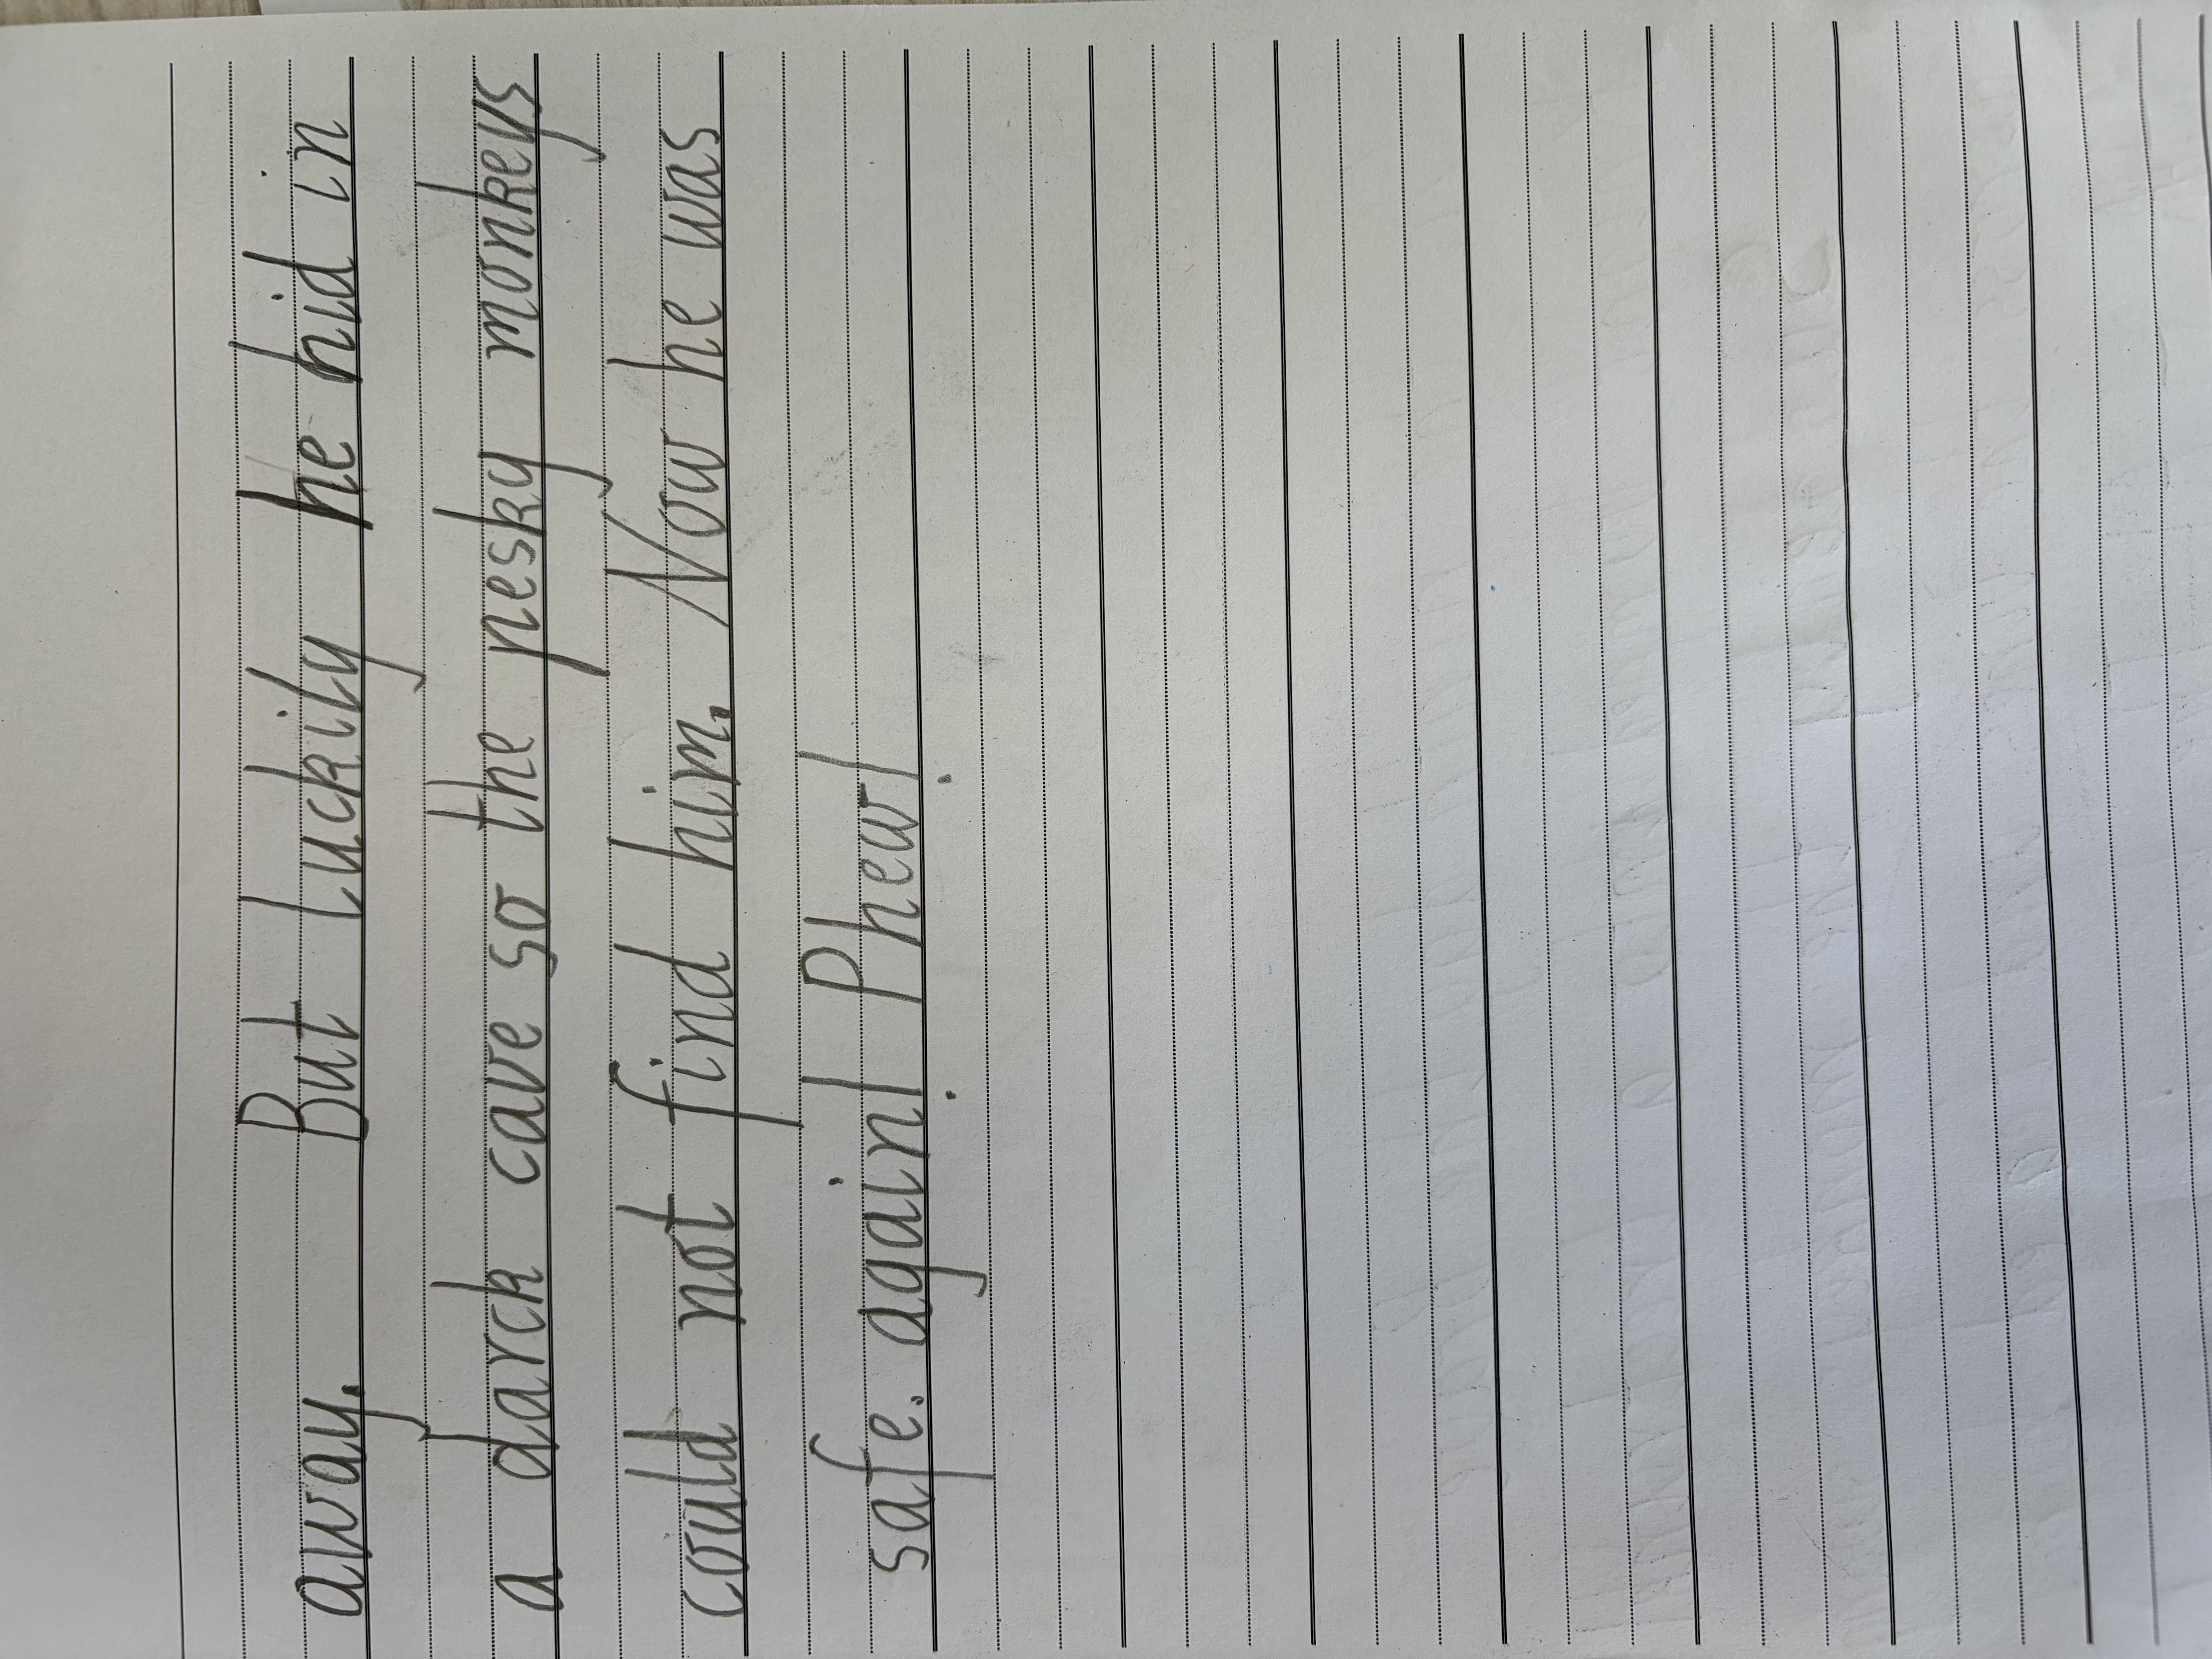 away. But luckily he hid in
a darck cave so the pesky monkeys
could not find him. Now he was
safe. again! Phew!